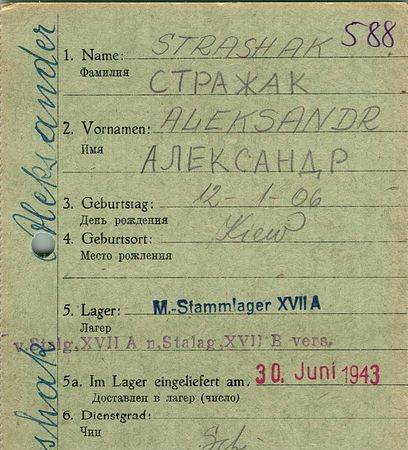 588
1. Name: STRASHAK
Фамилия СТРАЖАК
2. Vornamen: ALEKSANDR
Имя АЛЕКСАНДР
3. Geburtstag: 12-1-06
День рождения
4. Geburtsort: Kiew
Место рождения
5. Lager: M.-Stammlager XVII A
Лагерь
v. Stalg. XVII A n. Stalag. XVII B vers.
5a. Im Lager eingeliefert am: 30. Juni 1943
Доставлен в лагерь (число)
6. Dienstgrad:
Чин
shak Aleksander